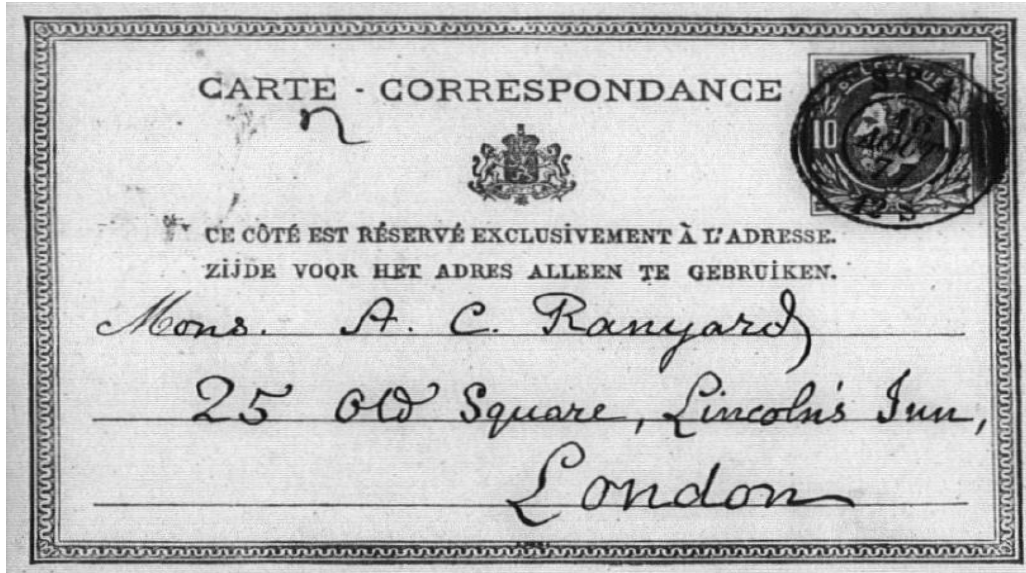 CARTE - CORRESPONDANCE
BELGIQUE
SPA
10 10
16
AOUT
77
12-S
n
CE CÔTÉ EST RÉSERVÉ EXCLUSIVEMENT À L'ADRESSE.
ZIJDE VOOR HET ADRES ALLEEN TE GEBRUIKEN.
Mons. A. C. Ranyard
25 Old Square, Lincoln's Inn,
London